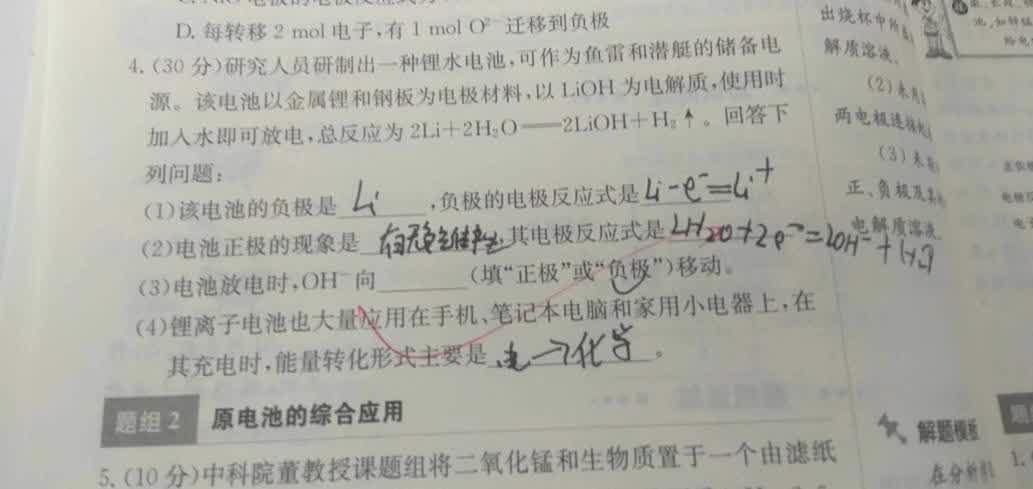 D. 每转移 2 mol 电子,有 1 mol O²⁻ 迁移到负极
4. (30 分)研究人员研制出一种锂水电池,可作为鱼雷和潜艇的储备电
源。该电池以金属锂和钢板为电极材料,以 LiOH 为电解质,使用时
加入水即可放电,总反应为 2Li+2H₂O══2LiOH+H₂↑。回答下
列问题:
(1)该电池的负极是 Li ,负极的电极反应式是 Li-e⁻=Li⁺
(2)电池正极的现象是 有 ,其电极反应式是 2H2O+2e⁻=2OH⁻+H2
(3)电池放电时,OH⁻向______(填“正极”或“负极”)移动。
(4)锂离子电池也大量应用在手机、笔记本电脑和家用小电器上,在
其充电时,能量转化形式主要是 电→化学 。
题组 2 原电池的综合应用
5. (10 分)中科院董教授课题组将二氧化锰和生物质置于一个由滤纸
出烧杯中所
解质溶液。
(2)未用
两电极连接
(3)未
正、负极及其
电解质溶液
解题模板
在分析